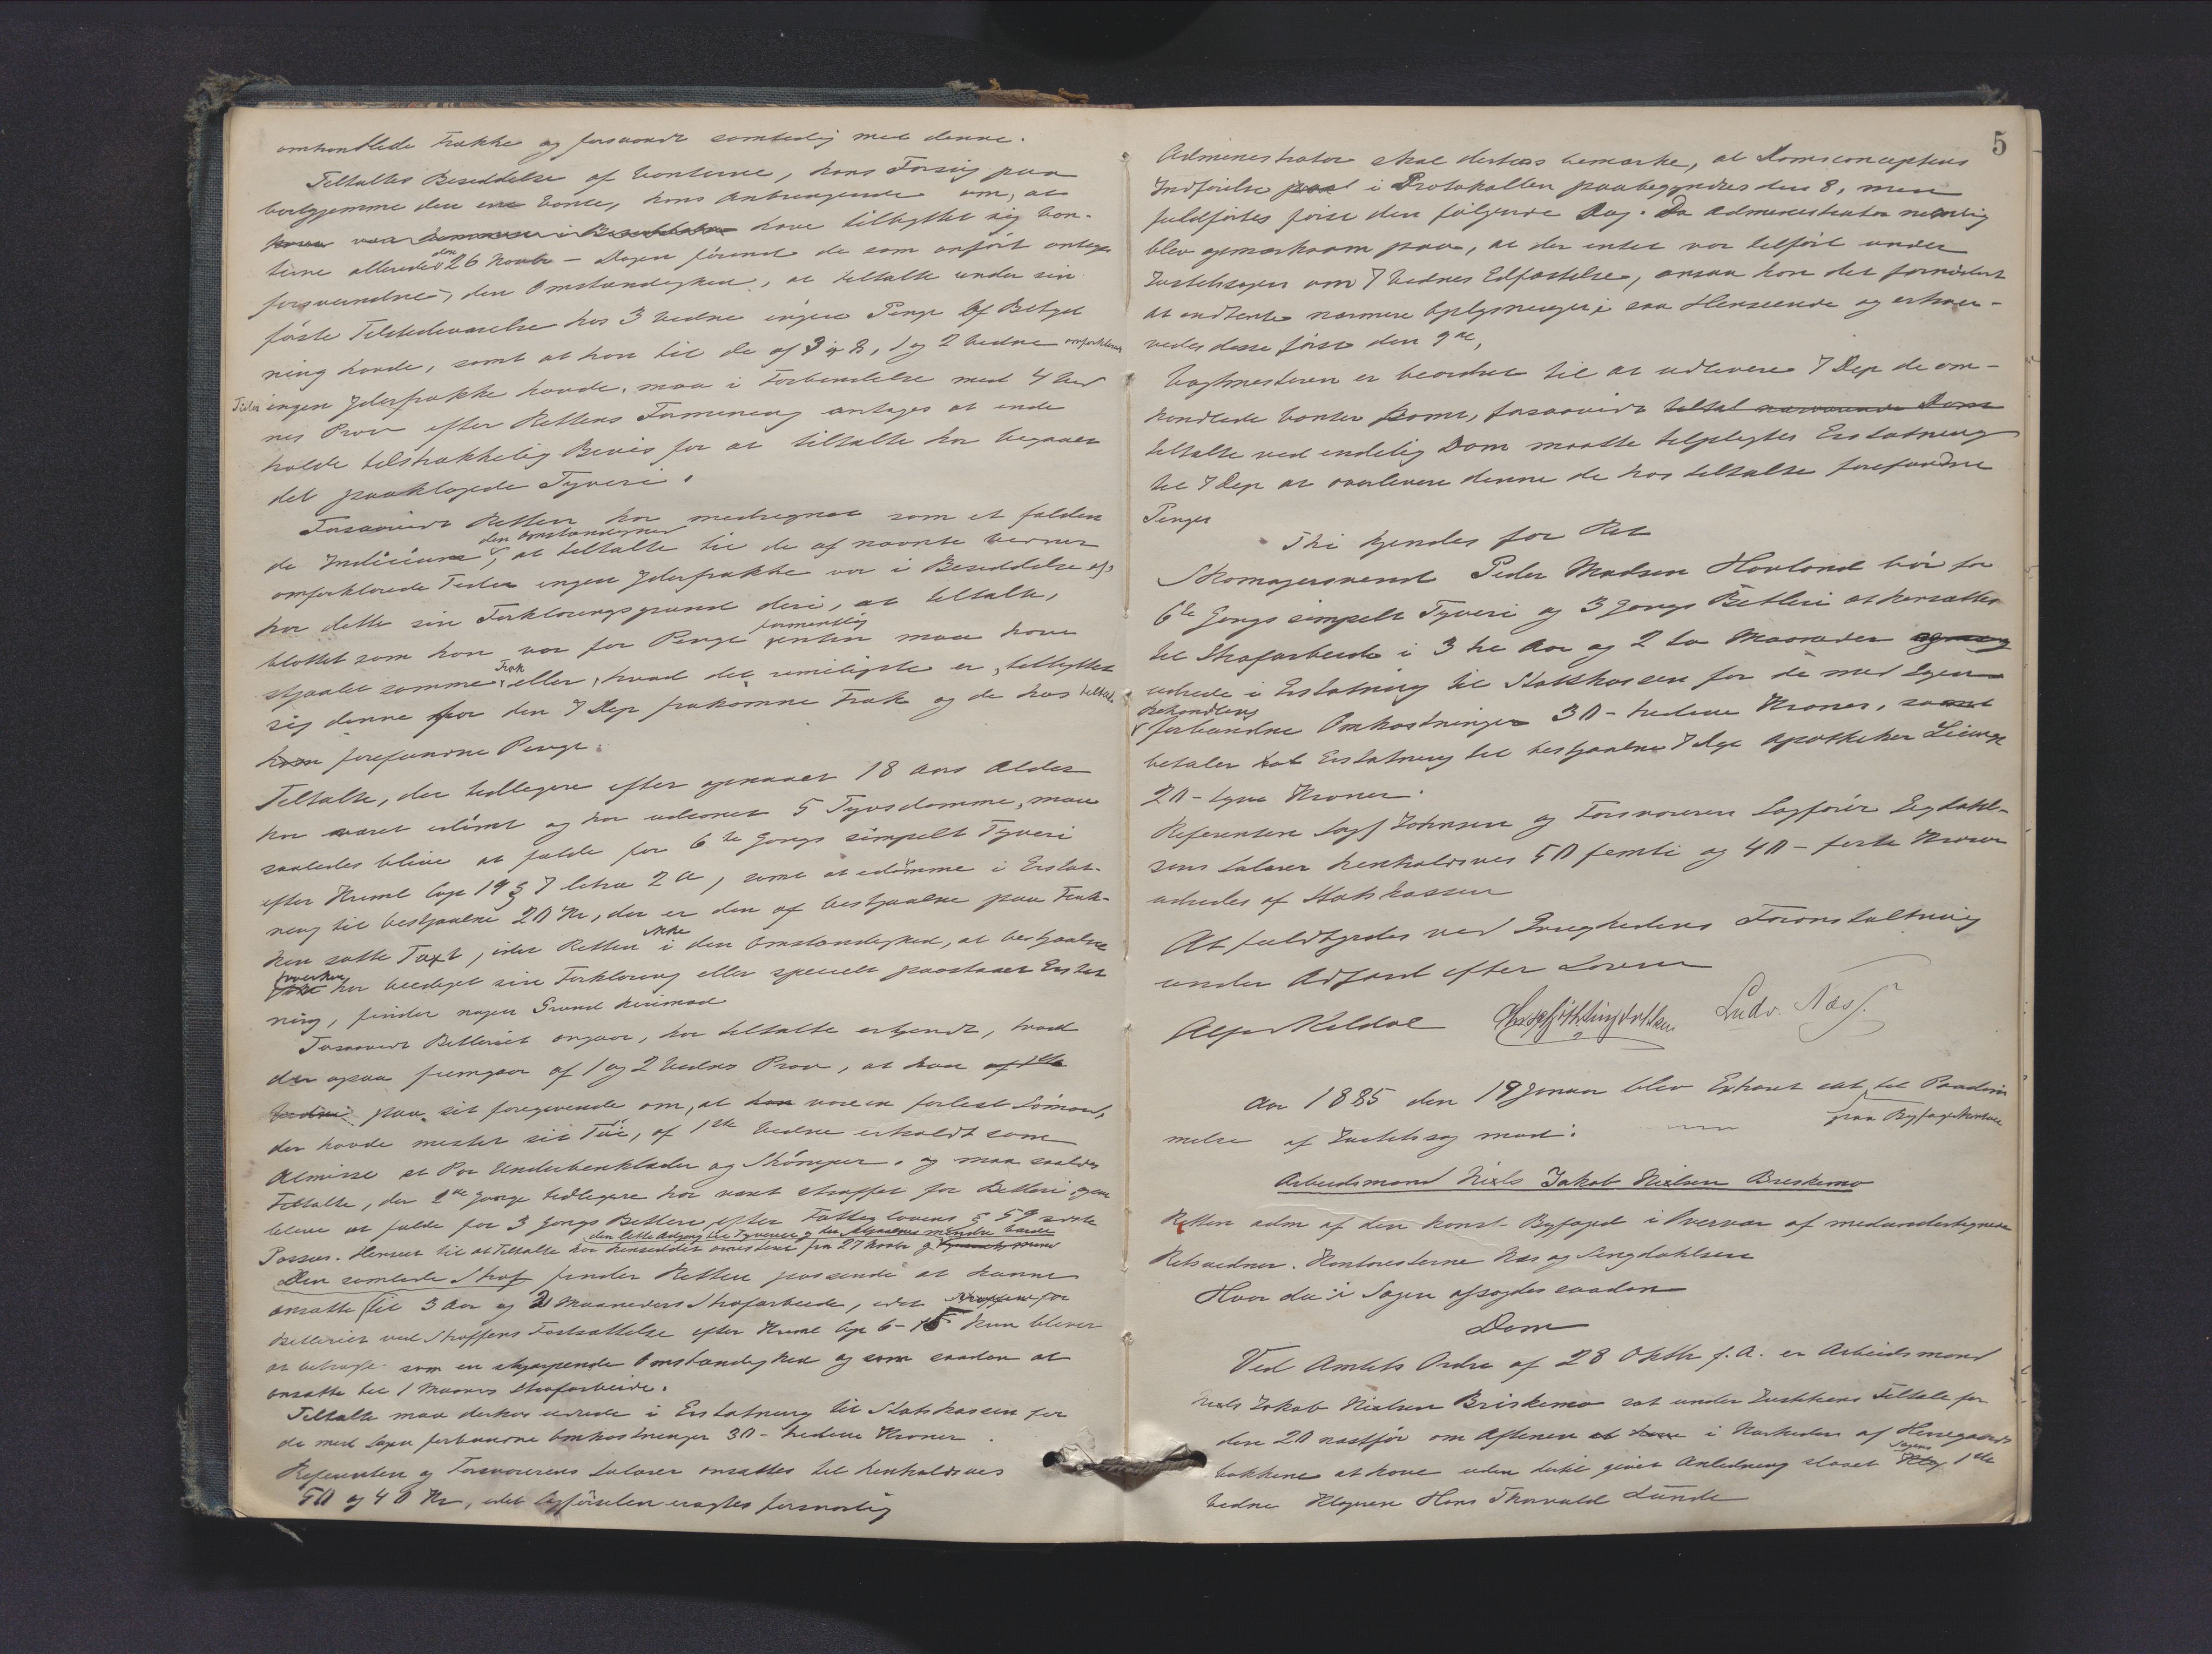 omhandlede Frakke og forsvandt samtidig med denne.
Tiltaltes Besiddelse af Vanterne, hans Forsøg paa
bortgjemme den ene Vante, hans Anbringende om, at
have tiltyttet sig Van-
terne allerede den 26 Novbr - Dagen førend de som anført
forsvandne, den Omstændighed, at tiltalte under sin
første Tilstedeværelse hos 3 Vedne ingen Penge af Betyd
ning havde, samt at han til de af 3 og 2, 1 og 2 Vedne omforklarede
Tider ingen Yderfrakke havde, maa i Forbindelse med 4 Ved
nes Prov efter Rettens Formening antages at inde
holde tilstrækkelig Bevis for at tiltalte har begaaet
det paaklagede Tyveri.
Forsaavidt Retten har medregnet som et fælden
de Indicium den Omstændighed, at tiltalte til de af nævnte Vedner
omforklarede Tider ingen Yderfrakke var i Besiddelse af,
har dette sin Forklaringsgrund deri, at tiltalte,
blottet som han var for Penge formentlig enten maa have
stjaalet samme Frak eller, hvad det rimeligste er, tiltyttet
sig denne for den 7 Dep frakomne Frak og de hos tiltalte
forefundne Penge.
Tiltalte, der tidligere efter opnaaet 18 Aars Alder
har været idømt og har udsonet 5 Tyvsdomme, maa
saaledes blive at fælde for 6te Gangs simpelt Tyveri
efter Kriml Cap 19 § 7 litra 2 a, samt at idømme i Erstat-
ning til bestjaalne 20 Kr, der er den af bestjaalne paa Frak-
ken satte Taxt, idet Retten ikke i den Omstændighed, at bestjaalne
hverken har beediget sin Forklaring eller specielt paastaaet Erstat
ning, finder nogen Grund herimod
Forsaavidt Betleriet angaar, har tiltalte erkjendt, hvad
der ogsaa fremgaar af 1 og 2 Vednes Prov, at han af 1ste
Vedne paa sit foregivende om, at han var en forlist Sømand,
der havde mistet sit Tøi, af 1ste Vedne erholdt som
Almisse et Par Underbenklæder og Strømper, og maa saaledes
Tiltalte, der 2de Gange tidligere har været straffet for Betleri, igjen
blive at fælde for 3 Gangs Betleri efter Fattiglovens § 59 sidste
Passus. Henset til at Tiltalte har hensiddet arresteret fra 27 Novbr og
den lette Adgang til Tyveriet og det stjaalnes mindre Værdi
Den samlede Straf finder Retten passende at kunne
ansætte til 3 Aar og 2 Maaneders Strafarbeide, idet Straffen for
Betleriet ved Straffens Fastsættelse efter Kriml Cap 6 - 15 kun bliver
at betragte som en skjærpende Omstændighed og som saadan at
ansætte til 1 Maaneds Strafarbeide.
Tiltalte maa derhos udrede i Erstatning til Statskassen for
de med Sagen forbundne Omkostninger 30 - tredive Kroner.
Referenten og Forsvarerens Salærer ansættes til henholdsvis
50 og 40 Kr, idet Sagførselen eragtes forsvarlig
5
Administrator skal derhos bemærke, at Domsconceptens
Indførelse i Protokollen paabegyndtes den 8, men
fuldførtes først den følgende Dag. Da Administrator nemlig
blev opmærksom paa, at der intet var tilført under
Justitssagen om 7 Vednes Edfæstelse, ansaa han det fornødent
at indhente nærmere Oplysninger i saa Henseende og erhver-
vedes disse først den 9de.
Vagtmesteren er beordret til at udlevere 7 Dep de om-
handlede Vanter samt, forsaavidt
tiltalte ved endelig Dom maatte tilpligtes Erstatning
til 7 Dep at overlevere denne de hos tiltalte forefundne
Penge
Thi kjendes for Ret
Skomagersvend Peder Madsen Hovland bør for
6te Gangs simpelt Tyveri og 3 Gangs Betleri at hensættes
til Strafarbeide i 3 tre Aar og 2 to Maaneder
udrede i Erstatning til Statskassen for de med Sagens
Behandling forbundne Omkostninger 30 - tredive Kroner, samt
betaler Erstatning til bestjaalne 7 Dep Apotheker
20 - tyve Kroner.
Referenten Sagf Johnsen og Forsvareren Sagfører
sens Salærer henholdsvis 50 femti og 40 - forti Kroner
udredes af Statskassen
At fuldbyrdes ved Øvrighedens Foranstaltning
under Adfærd efter Loven
Alf Keldal Ludv. Næss.
Aar 1885 den 19 Januar blev Extraret sat til Paadøm
paa Bykontoret
melse af Justitssag mod:
Arbeidsmand Niels Jakob Nielsen Briskemo
Retten adm af den konst. Byfoged i Overvær af medundertegnede
Retsvidner. Kontoristerne Næs og
Hvor da i Sagen afsagdes saadan
Dom
Ved Amtets Ordre af 28 Oktbr f.A. er Arbeidsmand
Niels Jakob Nielsen Briskemo sat under Justitiens Tiltale for
den 20 næstfør om Aftenen i Nærheden af
bakkene at have uden dertil given Anledning slaaet Sagens 1ste
Vedne Klageren Hans Thorvald Lunde